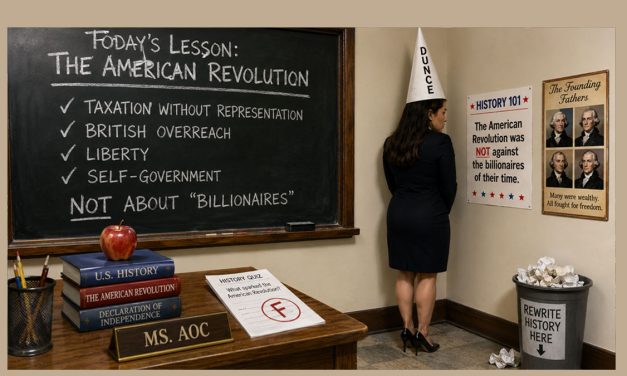 TODAY'S LESSON:
THE AMERICAN REVOLUTION
✓ TAXATION WITHOUT REPRESENTATION
✓ BRITISH OVERREACH
✓ LIBERTY
✓ SELF-GOVERNMENT
NOT ABOUT "BILLIONAIRES"
DUNCE
HISTORY 101
The American
Revolution was
NOT against
the billionaires
of their time.
The Founding
Fathers
Many were wealthy.
All fought for freedom.
U.S. HISTORY
THE AMERICAN REVOLUTION
DECLARATION OF
INDEPENDENCE
MS. AOC
HISTORY QUIZ
What sparked the
American Revolution?
F
REWRITE
HISTORY
HERE